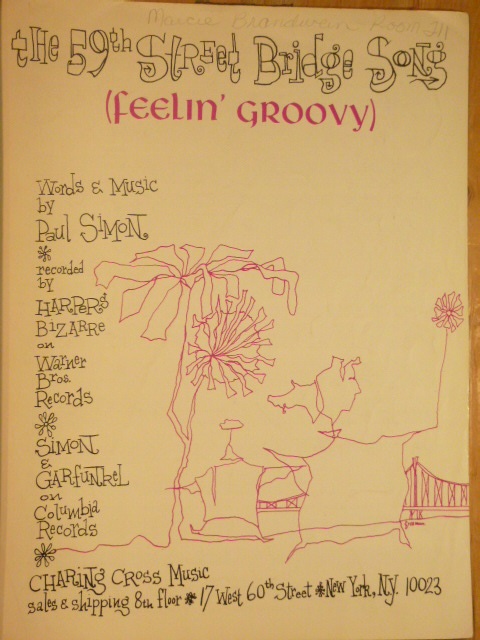 Marcie Brandwein Room 211
the 59th Street Bridge Song
(feelin' groovy)
Words & Music
by
Paul Simon
*
recorded
by
HARPERS
BIZARRE
on
Warner
Bros.
Records
*
SIMON
&
GARFUNKEL
on
Columbia
Records
*
CHARING CROSS MUSIC
sales & shipping 8th floor * 17 West 60th Street * New York, N.Y. 10023